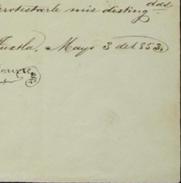 protestarle mis disting das
Tuxtla, Mayo 3 de 1853.